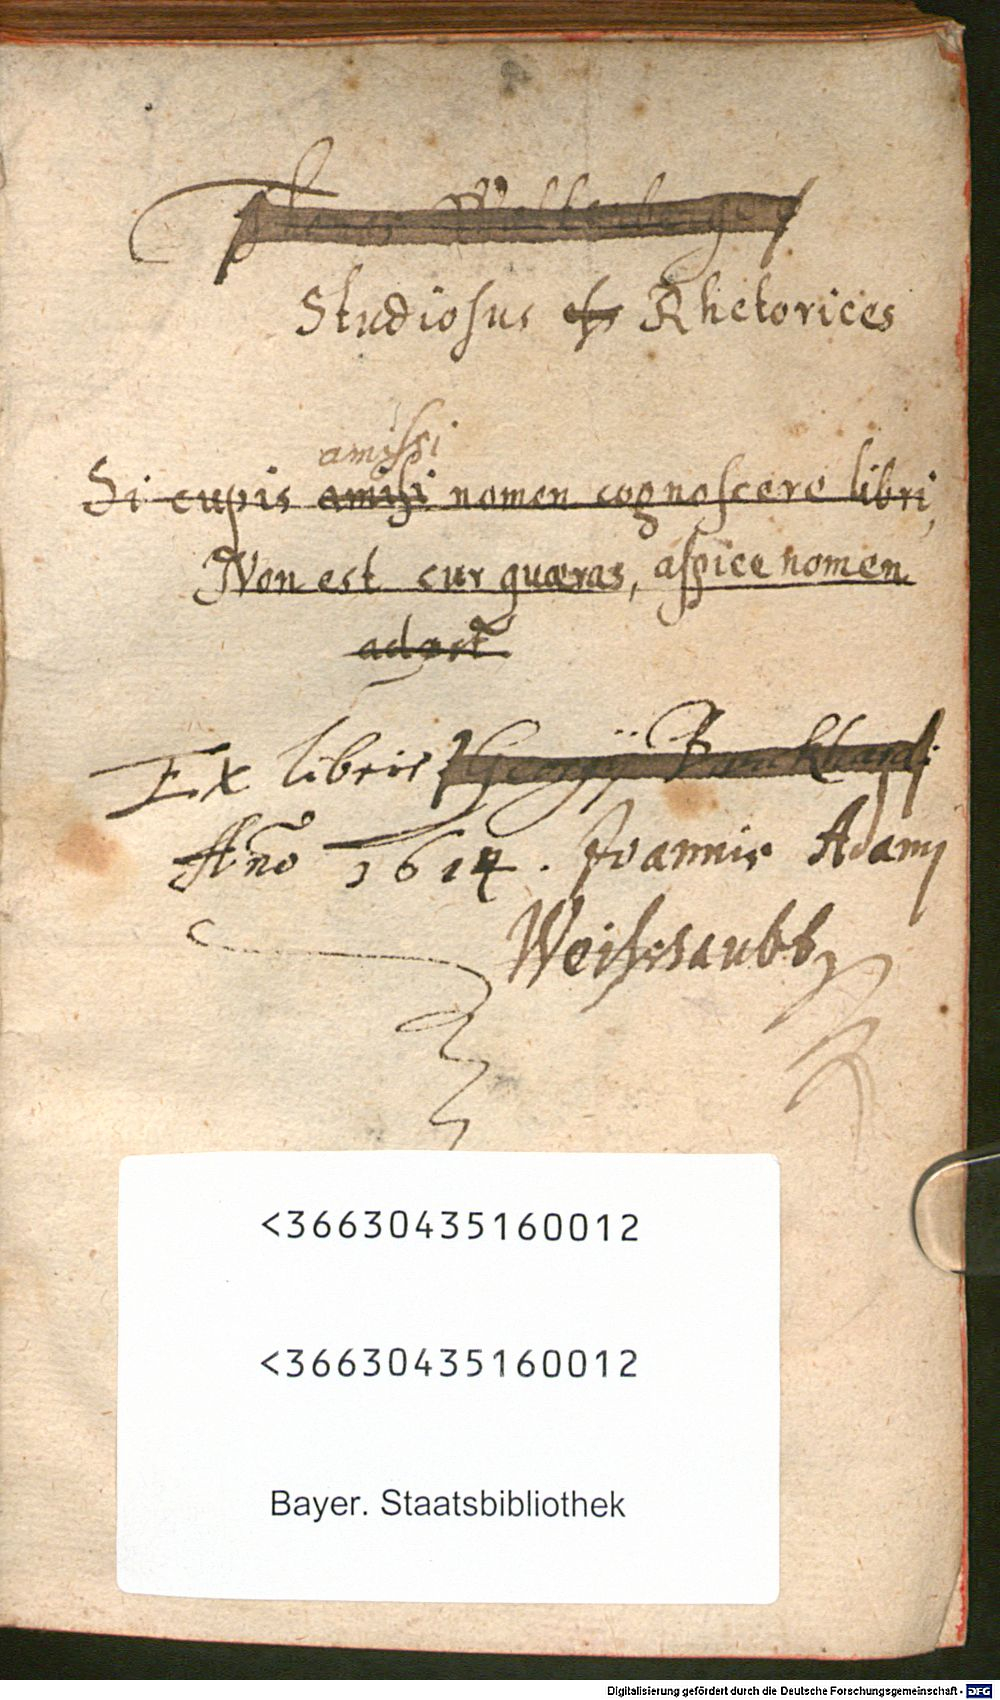 Studiosus Rhetorices
amissi
Si cupis amissi nomen cognoscere libri,
Non est cur quæras, aspice nomen
adest
Ex libris Georgij Burckhardi
Año 1614. Joannis Adamj
<36630435160012
<36630435160012
Bayer. Staatsbibliothek
Digitalisierung gefördert durch die Deutsche Forschungsgemeinschaft - DFG